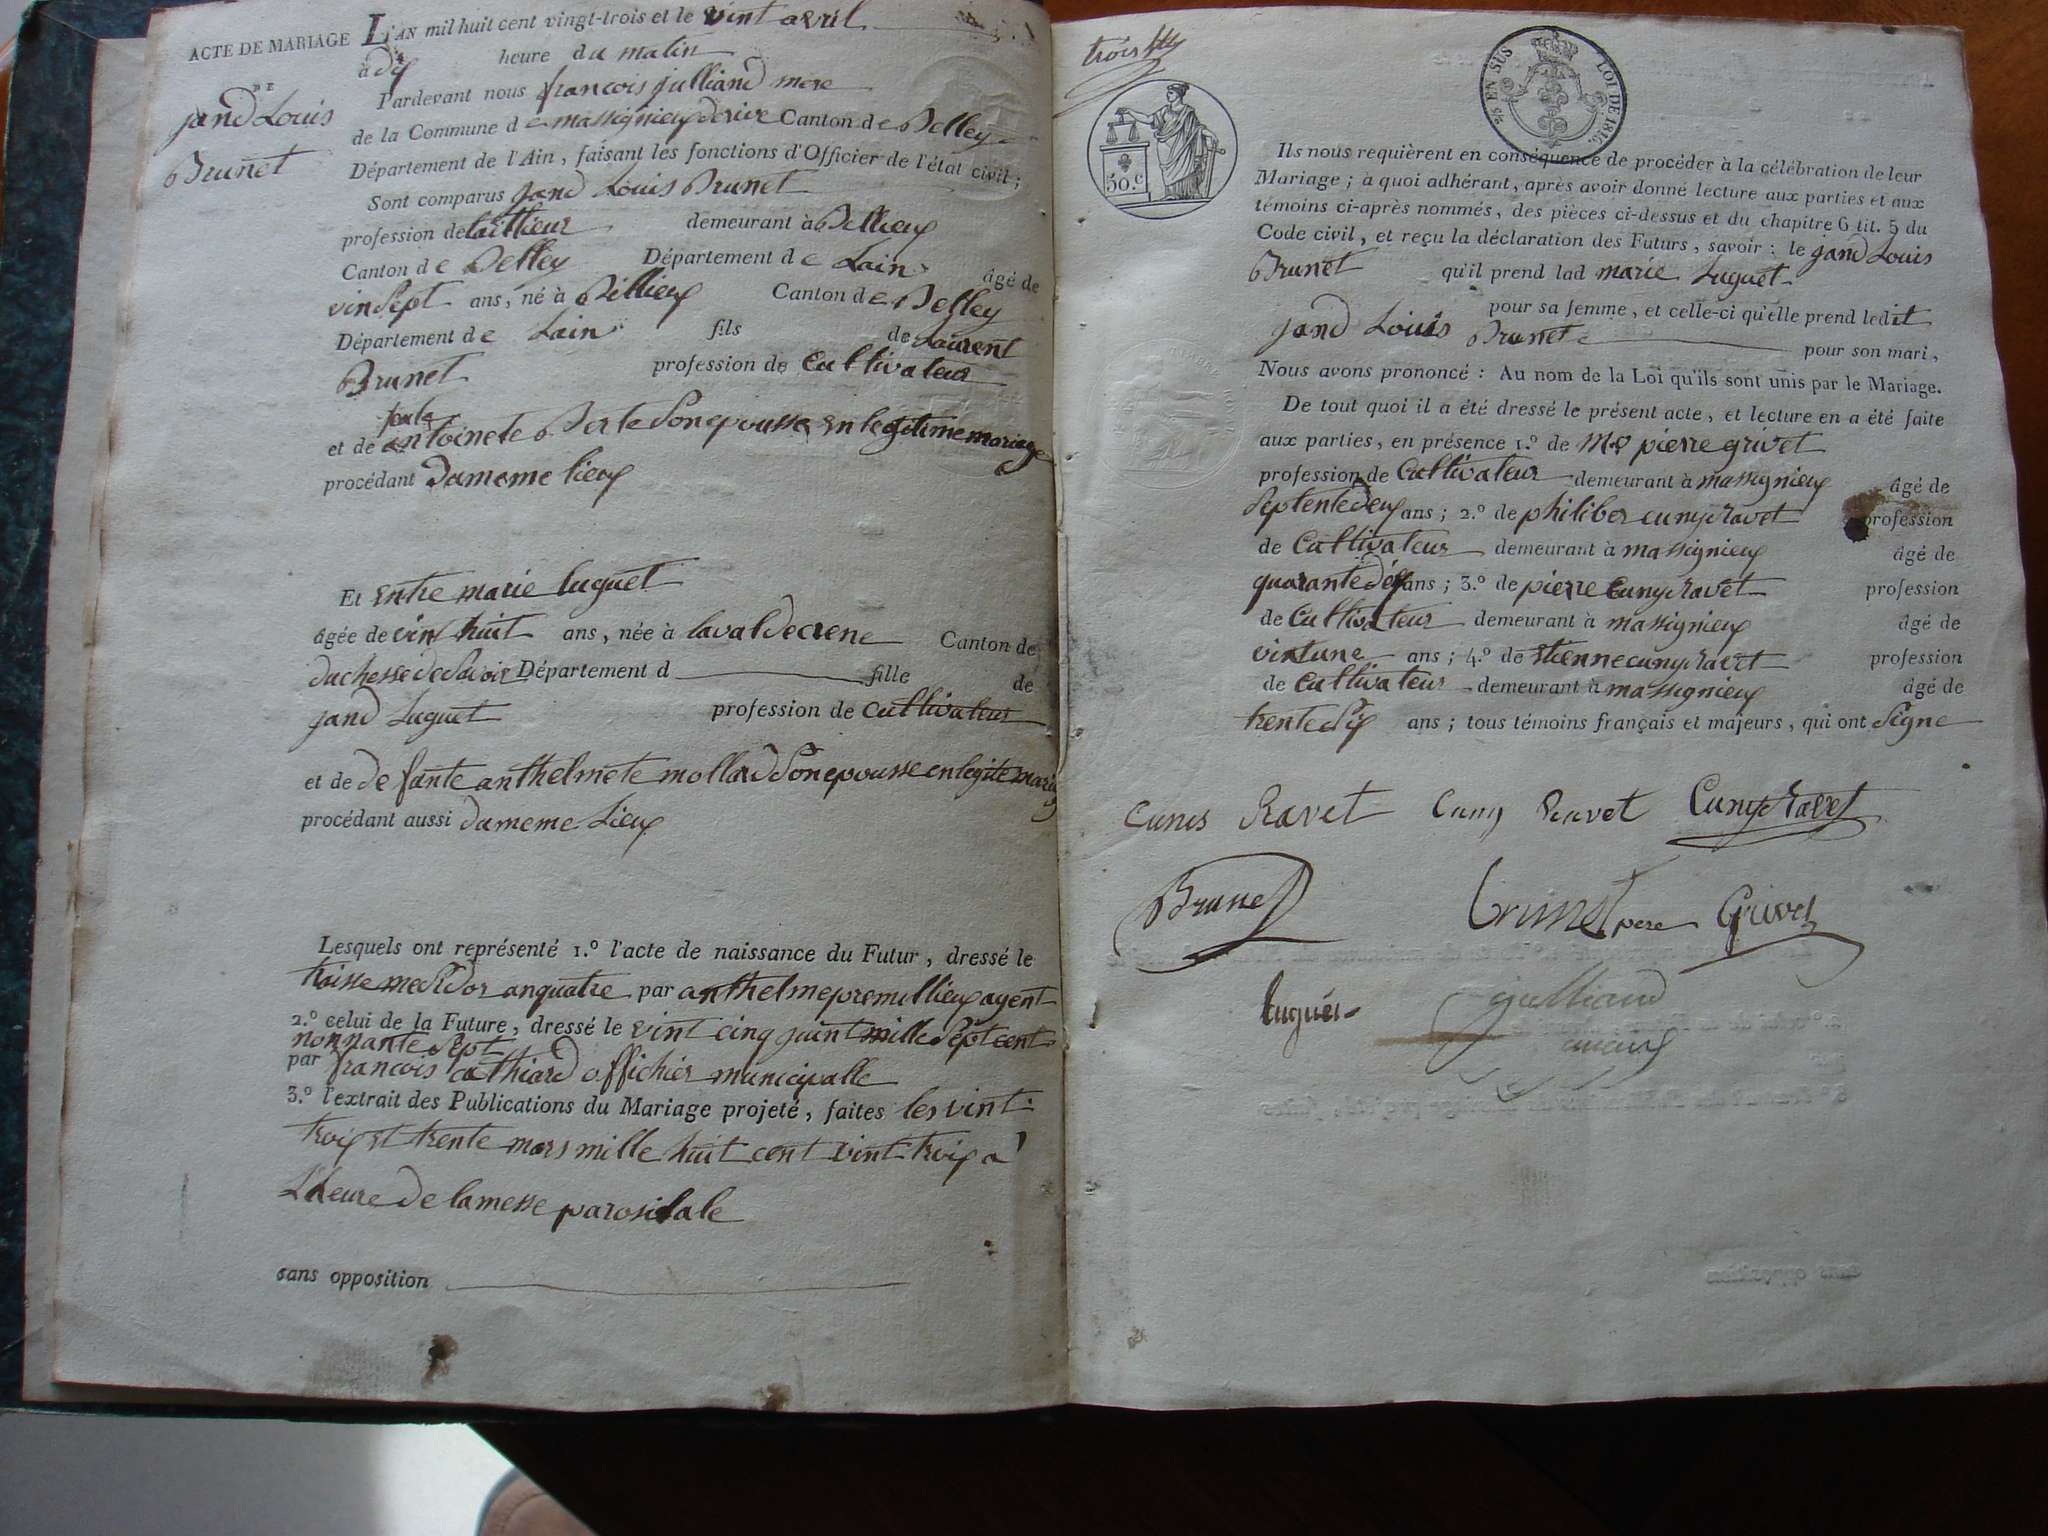 ACTE DE MARIAGE
DE
jand Louis
Brunet
L'AN mil huit cent vingt-trois et le vint avril
à dix heure du matin
Pardevant nous francois julliand mere
de la Commune de massignieux de rive Canton de Belley
Département de l'Ain, faisant les fonctions d'Officier de l'état civil ;
Sont comparus jand Louis Brunet
profession de demeurant à Billieux
Canton de Belley Département de Lain âgé de
vinsept ans, né à Billieux Canton de Belley
Département de Lain fils de Laurent
Brunet profession de cultivateur
et de antoinete Berte Son epousse en legitime mariage
procédant dumeme lieux
Et entre marie luguet
âgée de vint huit ans, née à lavaldecrene Canton de
duchesse de Savoir Département d fille de
jand Luguet profession de cultivateur
et de de fante anthelmete mollard Son epousse en legite maria
procédant aussi dumeme Lieux
Lesquels ont représenté 1.º l'acte de naissance du Futur, dressé le
troisse mesidor anquatre par anthelme premillieux agent
2.º celui de la Future, dressé le vint cinq juint mille Sept cent
nonnante Sept
par francois cathiard offichier municipalle
3.º l'extrait des Publications du Mariage projeté, faites les vint
troix et trente mars mille huit cent vint troix a
Lheure de lamesse parosialle
sans opposition
trois
50.c
2/5 EN SUS LOI DE 1816.
TIMBRE ROYAL
Ils nous requièrent en conséquence de procéder à la célébration de leur
Mariage ; à quoi adhérant, après avoir donné lecture aux parties et aux
témoins ci-après nommés, des pièces ci-dessus et du chapitre 6 tit. 5 du
Code civil, et reçu la déclaration des Futurs, savoir : le jand Louis
Brunet qu'il prend lad marie Luguet
pour sa femme, et celle-ci qu'elle prend ledit
jand Louis Brunet pour son mari,
Nous avons prononcé : Au nom de la Loi qu'ils sont unis par le Mariage.
De tout quoi il a été dressé le présent acte, et lecture en a été faite
aux parties, en présence 1.º de Mr pierre grivet
profession de cultivateur demeurant à massignieux âgé de
Septentedeux ans ; 2.º de philiber cunyravet profession
de cultivateur demeurant à massignieux âgé de
quarante dix ans ; 3.º de pierre cunyravet profession
de cultivateur demeurant à massignieux âgé de
vintune ans ; 4.º de etienne cunyravet profession
de cultivateur demeurant à massignieux âgé de
trente Six ans ; tous témoins français et majeurs, qui ont Signe
Cunis Ravet Cuny Ravet Cuny Ravet
Brunet Brunet pere Grivet
luguet julliand